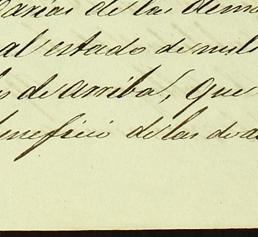 varias de las dem
al estado de nul
s de arriba, que
beneficio de las de a